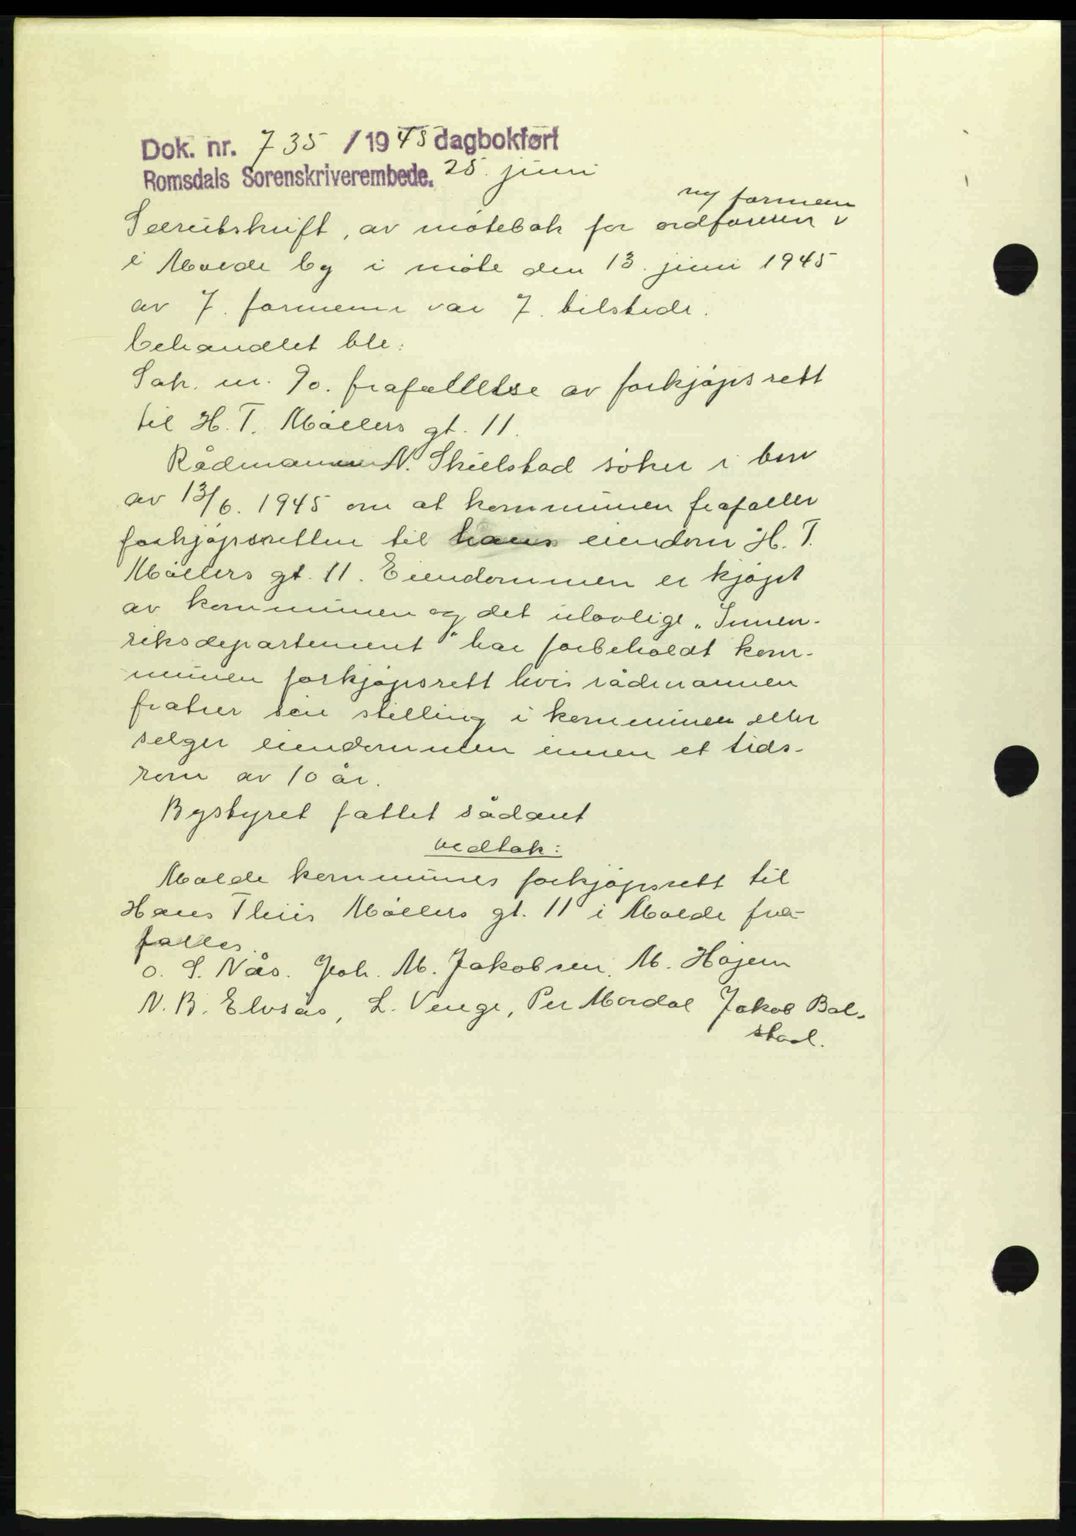 Dok. nr. 735 / 1945 dagbokført
Romsdals Sorenskriverembede. 25. juni
og formenn
Særutskrift, av møtebok for ordføreren v
i Molde by i møte den 13. juni 1945
av 7. formenn var 7. tilstede.
behandlet ble:
Sak. nr. 90. frafallelse av forkjøpsrett
til H. T. Møllers gt. 11.
Rådmannen N. Skielstad søker i brev
av 13/6. 1945 om at kommunen frafaller
forkjøpsretten til hans eiendom H. T.
Møllers gt. 11. Eiendommen er kjøpt
av kommunen og det ulovlige „Innen-
riksdepartement" har forbeholdt kom-
munen forkjøpsrett hvis rådmannen
fratrer sin stilling i kommunen eller
selger eiendommen innen et tids-
rom av 10 år.
Bystyret fattet sådant
vedtak:
Molde kommunes forkjøpsrett til
Hans Thiis Møllers gt. 11 i Molde fra-
falles.
O. S. Nås. Joh. M. Jakobsen. M. Højem
N. B. Elvsås, L. Venge, Per Mordal Jakob Bol-
stad.